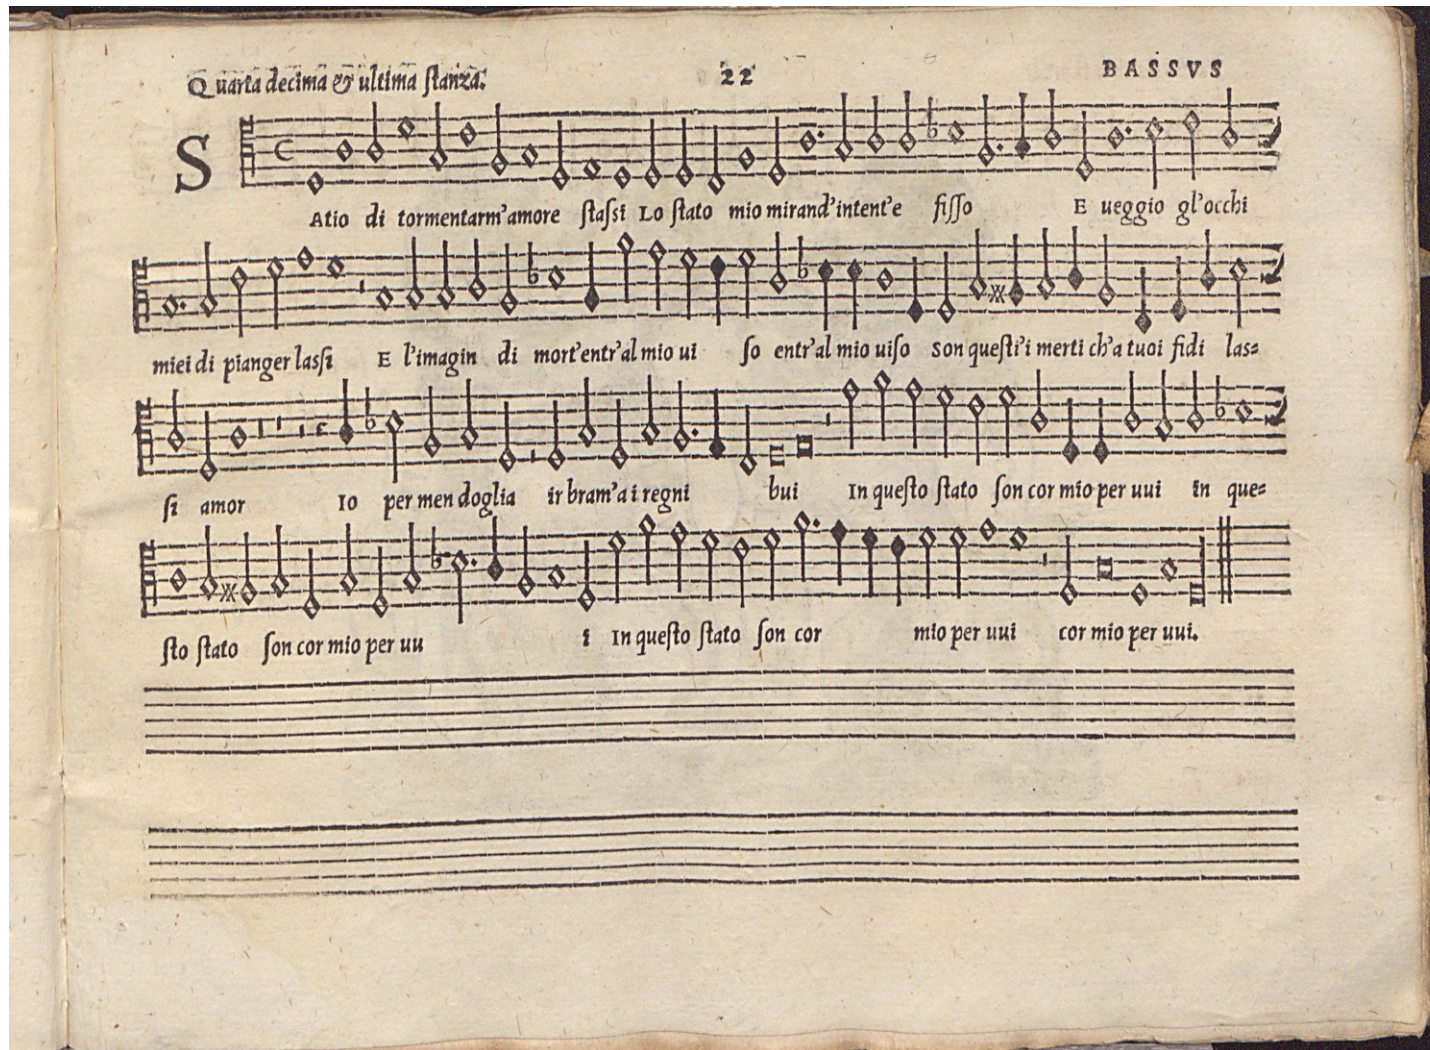 Quarta decima & ultima ſtanza. 22 BASSVS
SAtio di tormentarm'amore ſtaſsi Lo ſtato mio mirand'intent'e fiſſo E ueggio gl'occhi
miei di pianger laſſi E l'imagin di mort'entr'al mio ui ſo entr'al mio uiſo Son queſti'i merti ch'a tuoi fidi las=
ſi amor Io per men doglia ir bram'a i regni bui In queſto ſtato ſon cor mio per uui in que=
ſto ſtato ſon cor mio per uu i In queſto ſtato ſon cor mio per uui cor mio per uui.